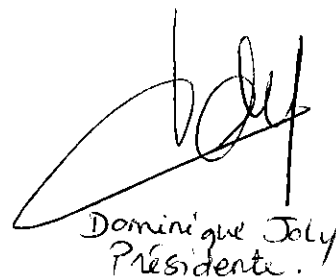 Joly
Dominique Joly
Présidente.